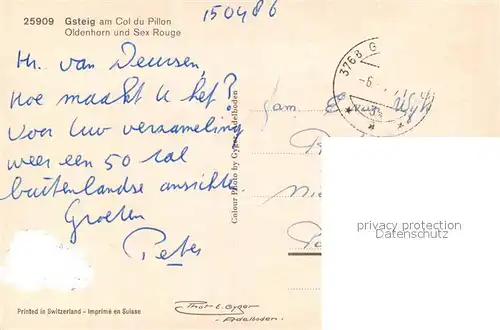 25909 Gsteig am Col du Pillon
Oldenhorn und Sex Rouge
150486
Hr. van Deursen,
Hoe maakt U het?
Voor Uw verzameling
weer een 50 tal
buitenlandse ansichte.
Groeten
Peter
Fam. E. van
3768 G
-6.
Colour Photo by Gyger Adelboden
privacy protection
Datenschutz
Printed in Switzerland - Imprimé en Suisse
Phot. E. Gyger
Adelboden.